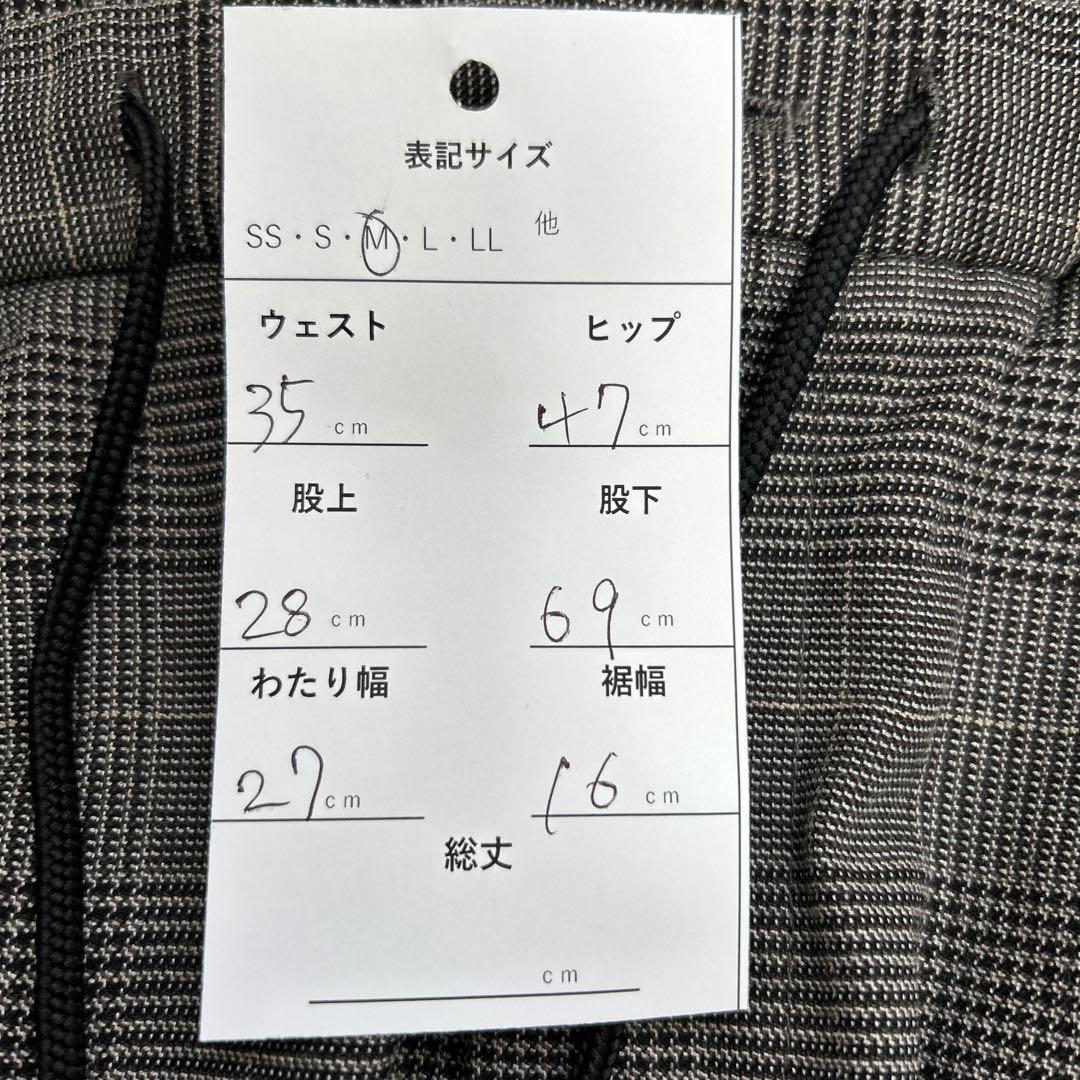 表記サイズ
SS・S・M・L・LL 他
ウェスト ヒップ
35 cm 47 cm
股上 股下
28 cm 69 cm
わたり幅 裾幅
27 cm 16 cm
総丈
cm